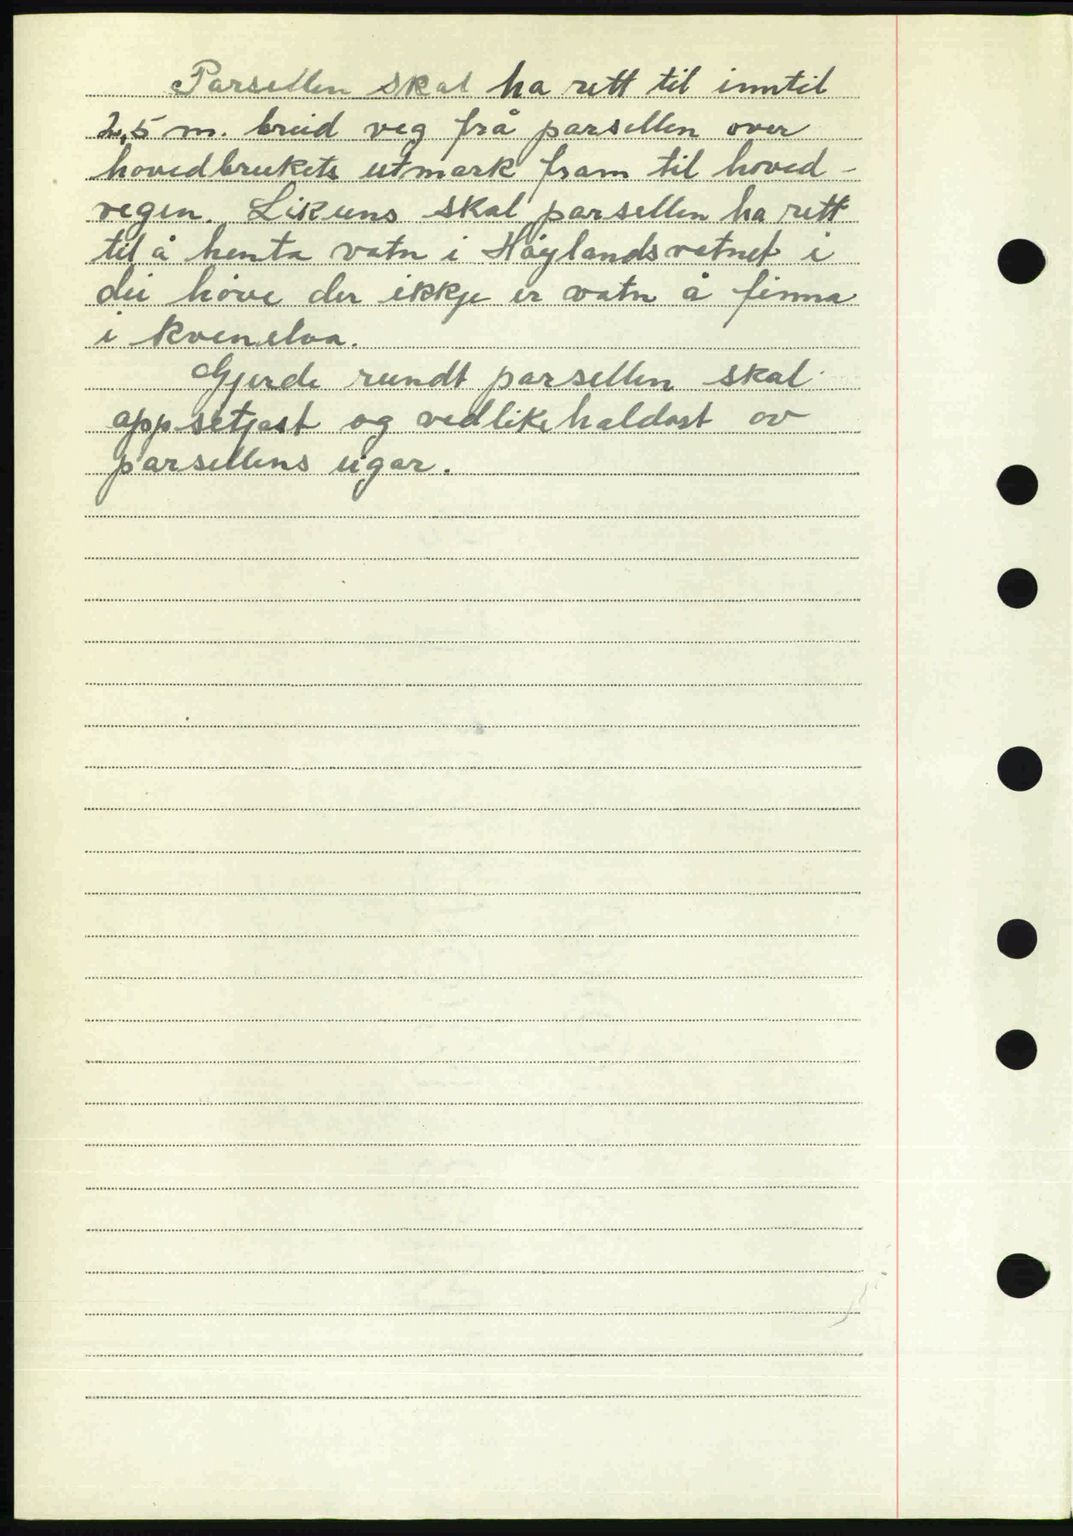 Parsellen skal ha rett til inntil
2,5 m. breid veg frå parsellen over
hovedbrukets utmark fram til hoved-
vegen. Likeens skal parsellen ha rett
til å henta vatn i Høylandsvatnet i
dei høve der ikkje er vatn å finna
i Kvenelva.
Gjerde rundt parsellen skal
oppsetjast og vedlikehaldast av
parsellens eigar.